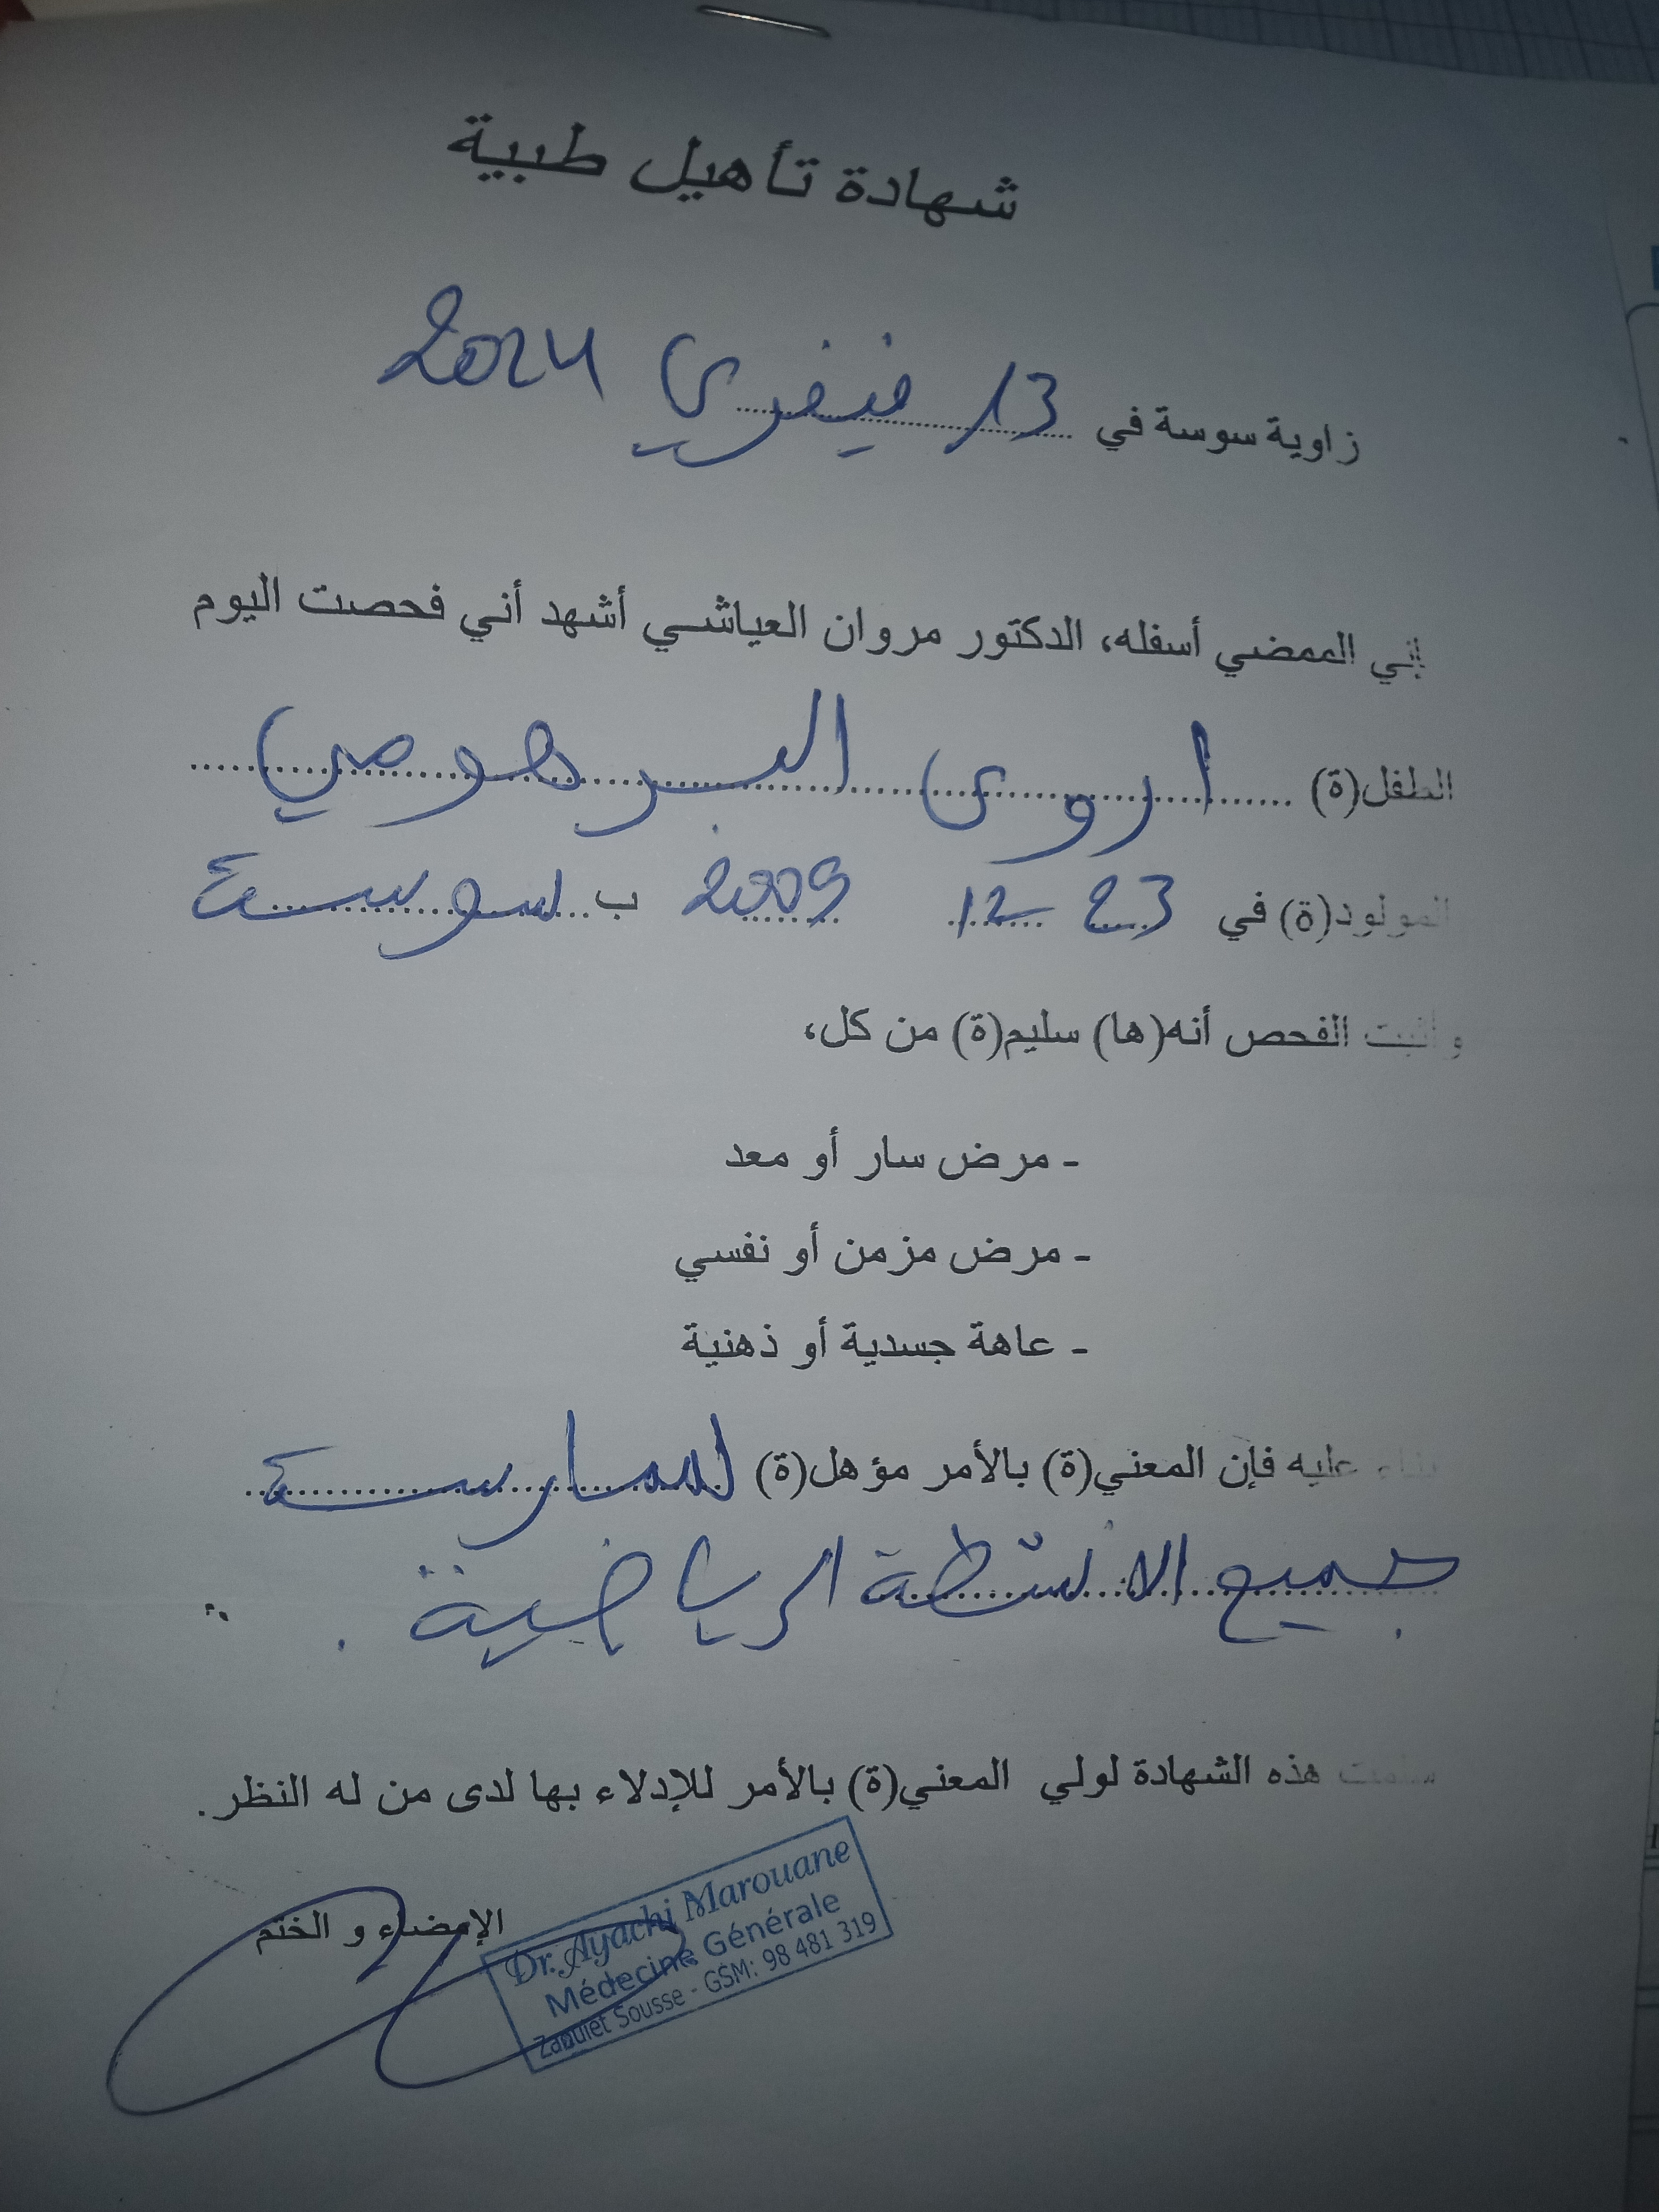 شهادة تأهيل طبية
زاوية سوسة في 13 فيفري 2024
إني الممضي أسفله، الدكتور مروان العياشي أشهد أني فحصت اليوم
الطفل(ة) اروى البرهومي
المولود(ة) في 23 12 2009 ب سوسة
و أثبت الفحص أنه(ها) سليم(ة) من كل،
- مرض سار أو معد
- مرض مزمن أو نفسي
- عاهة جسدية أو ذهنية
بناء عليه فإن المعني(ة) بالأمر مؤهل(ة) لممارسة
جميع الانشطة الرياضية .
سلمت هذه الشهادة لولي المعني(ة) بالأمر للإدلاء بها لدى من له النظر.
الإمضاء و الختم
Dr. Ayachi Marouane
Médecine Générale
Zaouiet Sousse - GSM: 98 481 319